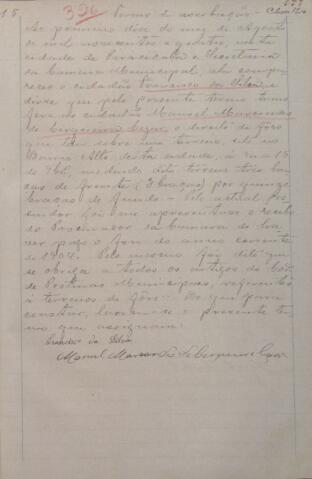 326
Termo de averbação
Ao primeiro dia do mez de Agosto
de mil novecentos e quatro, nesta
cidade de Piracicaba e Secretaria
da Camara Municipal, ahi compa-
receo o cidadão Francisco da Silva, e
disse que pelo presente termo trans
fere ao cidadão Manoel Marcondes
de Cerqueira Cesar, o direito de fôro
que tem sobre um terreno, sito no
Bairro Alto desta cidade, á rua 15
de            , medindo dito terreno tres bra-
ças de frente (3 braças) por quinze
braças de fundo. Pelo actual pos-
suidor foi me apresentado o recibo
do Procurador da Camara de ha-
ver pago o foro do anno corrente
de 1904. Pelo mesmo foi dito que
se obriga a todos os artigos do Cod.
de Posturas Municipaes, referente
á terrenos de fôro. Do que para
constar, lavrou-se o presente ter-
mo que assignam.
Francisco da Silva
Manoel Marcondes de Cerqueira Cesar